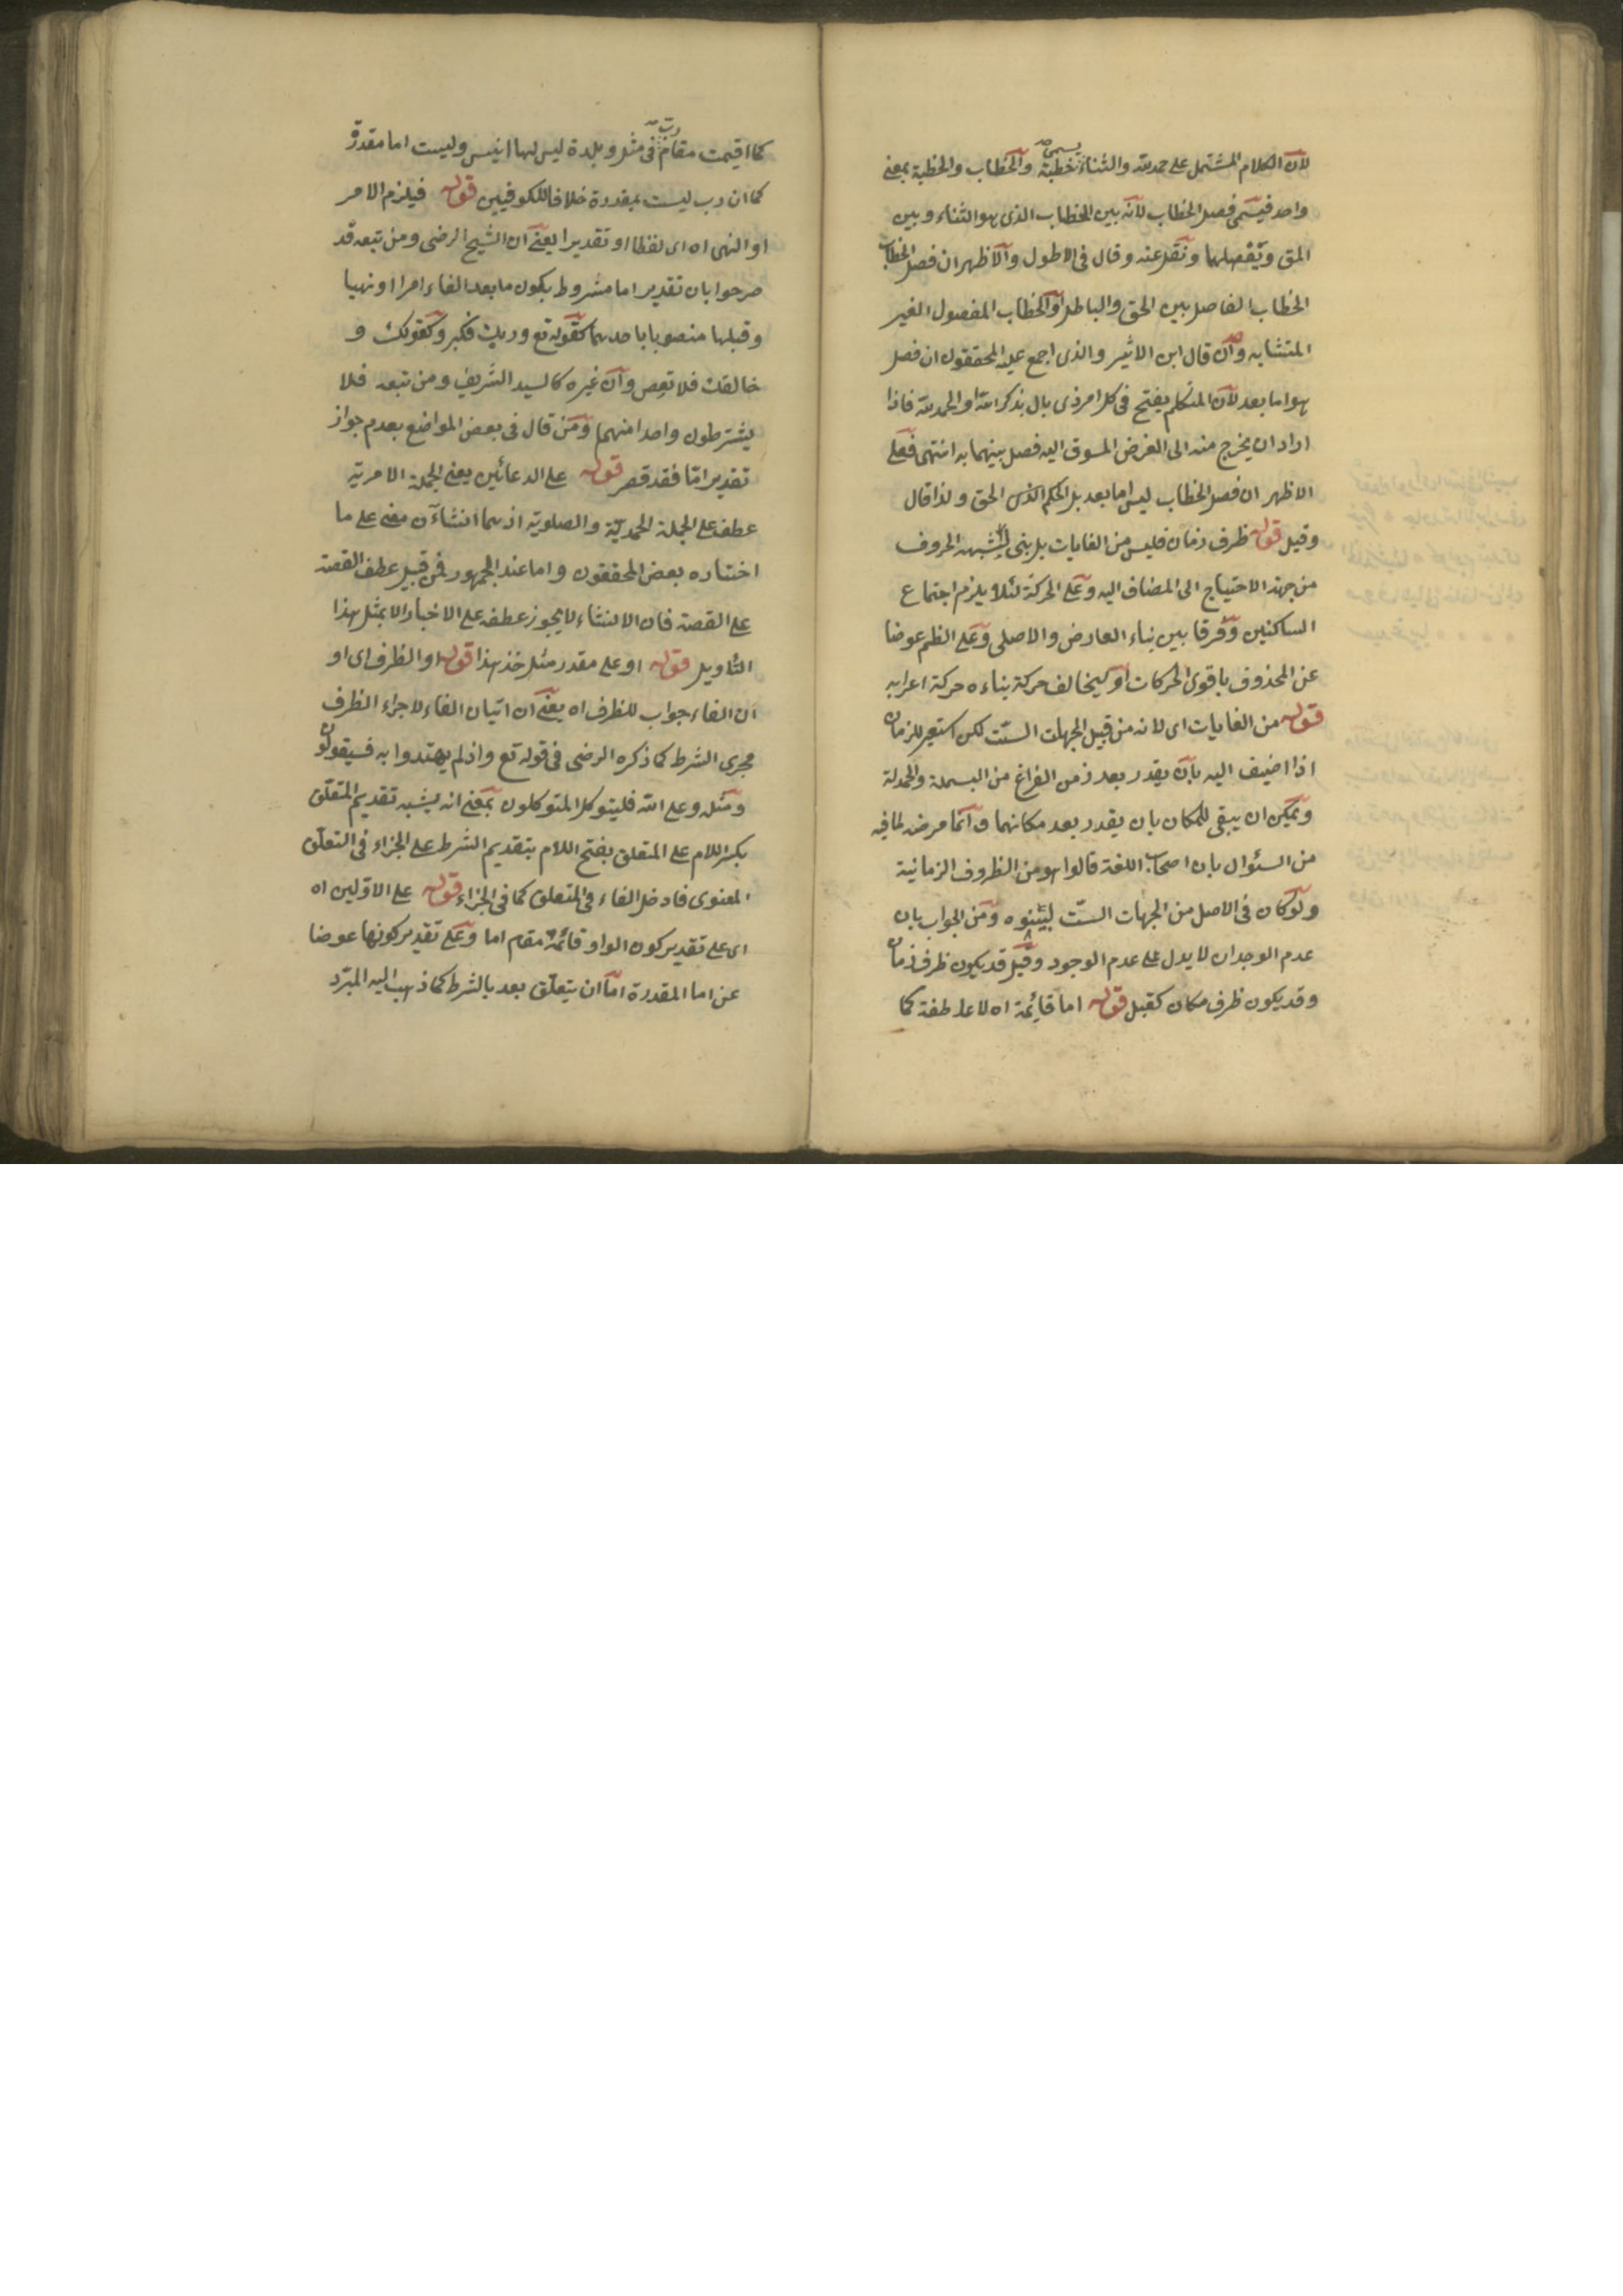 لأن الكلام المشتمل على حمد لله والثناء يسمى خطبة والخطاب والخطبة بمعنى
واحد فيسمى فصل الخطاب لأنه بين الخطاب الذى هو الثناء وبين
المق ويفصلهما ونقل عنه وقال فى الاطول والاظهر ان فصل الخطاب
الخطاب الفاصل بين الحق والباطل او الخطاب المفصول الغير
المتشابه وان قال ابن الاثير والذى اجمع عليه المحققون ان فصل
هو اما بعد لأن المتكلم يفتح فى كل امر ذى بال بذكر الله او الحمد لله فاذا
اراد ان يخرج منه الى الغرض المسوق اليه فصل بينهما به انتهى فعلى
الاظهر ان فصل الخطاب ليس اما بعد بل الحكم الحق ولذا قال
وقيل قوله ظرف زمان فليس من الغايات بل بنى لشبهه الحروف
من جهة الاحتياج الى المضاف اليه وعلى الحركة لئلا يلزم اجتماع
الساكنين وفرقا بين بناء العارض والاصلى وعلى الظم عوضا
عن المحذوف باقوى الحركات او ليخالف حركة بناءه حركة اعرابه
قوله من الغايات اى لانه من قبيل الجهات الست لكن استعير للزمان
اذا اضيف اليه بان يقدر بعد زمن الفراغ من البسملة والحمدلة
ويمكن ان يبقى للمكان بان يقدر بعد مكانهما وانما مرضه لما فيه
من السئوال بان اصحاب اللغة قالوا هو من الظروف الزمانية
ولو كان فى الاصل من الجهات الست لبينوه ومن الجواب بان
عدم الوجدان لا يدل على عدم الوجود وقيل قد يكون ظرف زمان
وقد يكون ظرف مكان كقبل قوله اما قائمة اه لا عاطفة كما
كما اقيمت مقام رب فى مثل وبلدة ليس لها انيس وليست اما مقدرة
كما ان رب ليست بمقدرة خلافا للكوفيين قوله فيلزم الامر
او النهى اه اى لفظا او تقديرا يعنى ان الشيخ الرضى ومن تبعه قد
صرحوا بان تقدير اما مشروط بكون ما بعد الفاء امرا او نهيا
وقبلها منصوبا باحدهما كقوله تع وربك فكبر وكقولك و
خالقك فلا تعص وان غيره كالسيد الشريف ومن تبعه فلا
يشترطون واحدا منهما ومن قال فى بعض المواضع بعدم جواز
تقدير اما فقد قصر قوله على الدعائين يعنى الجملة الامرية
عطف على الجملة الحمدية والصلوية اذ هما انشاآن معنى على ما
اختاره بعض المحققون واما عند الجمهور فمن قبيل عطف القصة
على القصة فان الانشاء لا يجوز عطفه على الاخبار الا بمثل هذا
التأويل قوله او على مقدر مثل خذ هذا قوله او الظرف اى او
ان الفاء جواب للظرف اه يعنى ان اتيان الفاء لاجراء الظرف
مجرى الشرط كما ذكره الرضى فى قوله تع واذ لم يهتدوا به فسيقولون
ومثله وعلى الله فليتوكل المتوكلون بمعنى انه يشبه تقديم المتعلق
بكسر اللام على المتعلق بفتح اللام بتقديم الشرط على الجزاء فى التعلق
المعنوى فادخل الفاء فى المتعلق كما فى الجزاء قوله على الاولين اه
اى على تقدير كون الواو قائمة مقام اما وعلى تقدير كونها عوضا
عن اما المقدرة اما ان يتعلق بعد بالشرط كما ذهب اليه المبرد